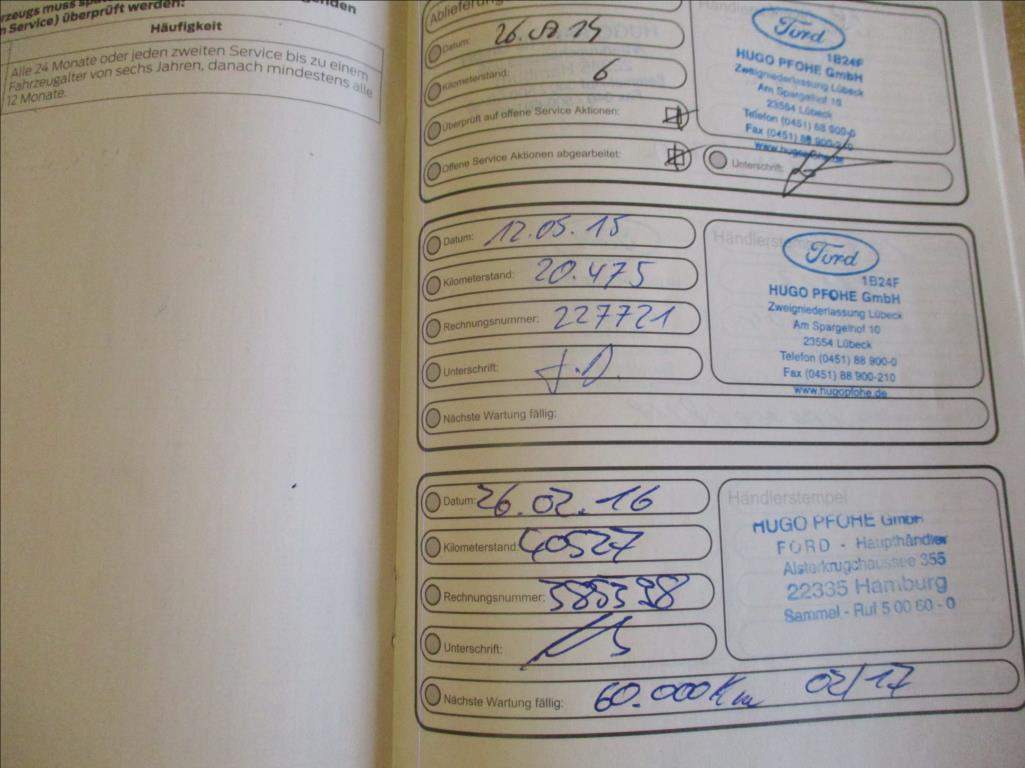 rzeugs muss
n Service) überprüft werden:
enden
Häufigkeit
Alle 24 Monate oder jeden zweiten Service bis zu einem
Fahrzeugalter von sechs Jahren, danach mindestens alle
12 Monate.
Ablieferung
Datum:
Kilometerstand: 6
Überprüft auf offene Service Aktionen:
Offene Service Aktionen abgearbeitet:
Ford
1B24F
HUGO PFOHE GmbH
Zweigniederlassung Lübeck
Am Spargelhof 10
23554 Lübeck
Telefon (0451) 88 900-0
Fax (0451) 88 900-210
www.hugopfohe.de
Unterschrift:
Datum: 12.05.15
Kilometerstand: 20.475
Rechnungsnummer: 227721
Unterschrift:
Nächste Wartung fällig:
Händlerstempel
Ford
1B24F
HUGO PFOHE GmbH
Zweigniederlassung Lübeck
Am Spargelhof 10
23554 Lübeck
Telefon (0451) 88 900-0
Fax (0451) 88 900-210
www.hugopfohe.de
Datum: 26.02.16
Kilometerstand: 40527
Rechnungsnummer:
Unterschrift:
Nächste Wartung fällig: 60.000 Km 02/17
Händlerstempel
HUGO PFOHE GmbH
FORD - Haupthändler
Alsterkrugchaussee 355
22335 Hamburg
Sammel - Ruf 5 00 60 - 0